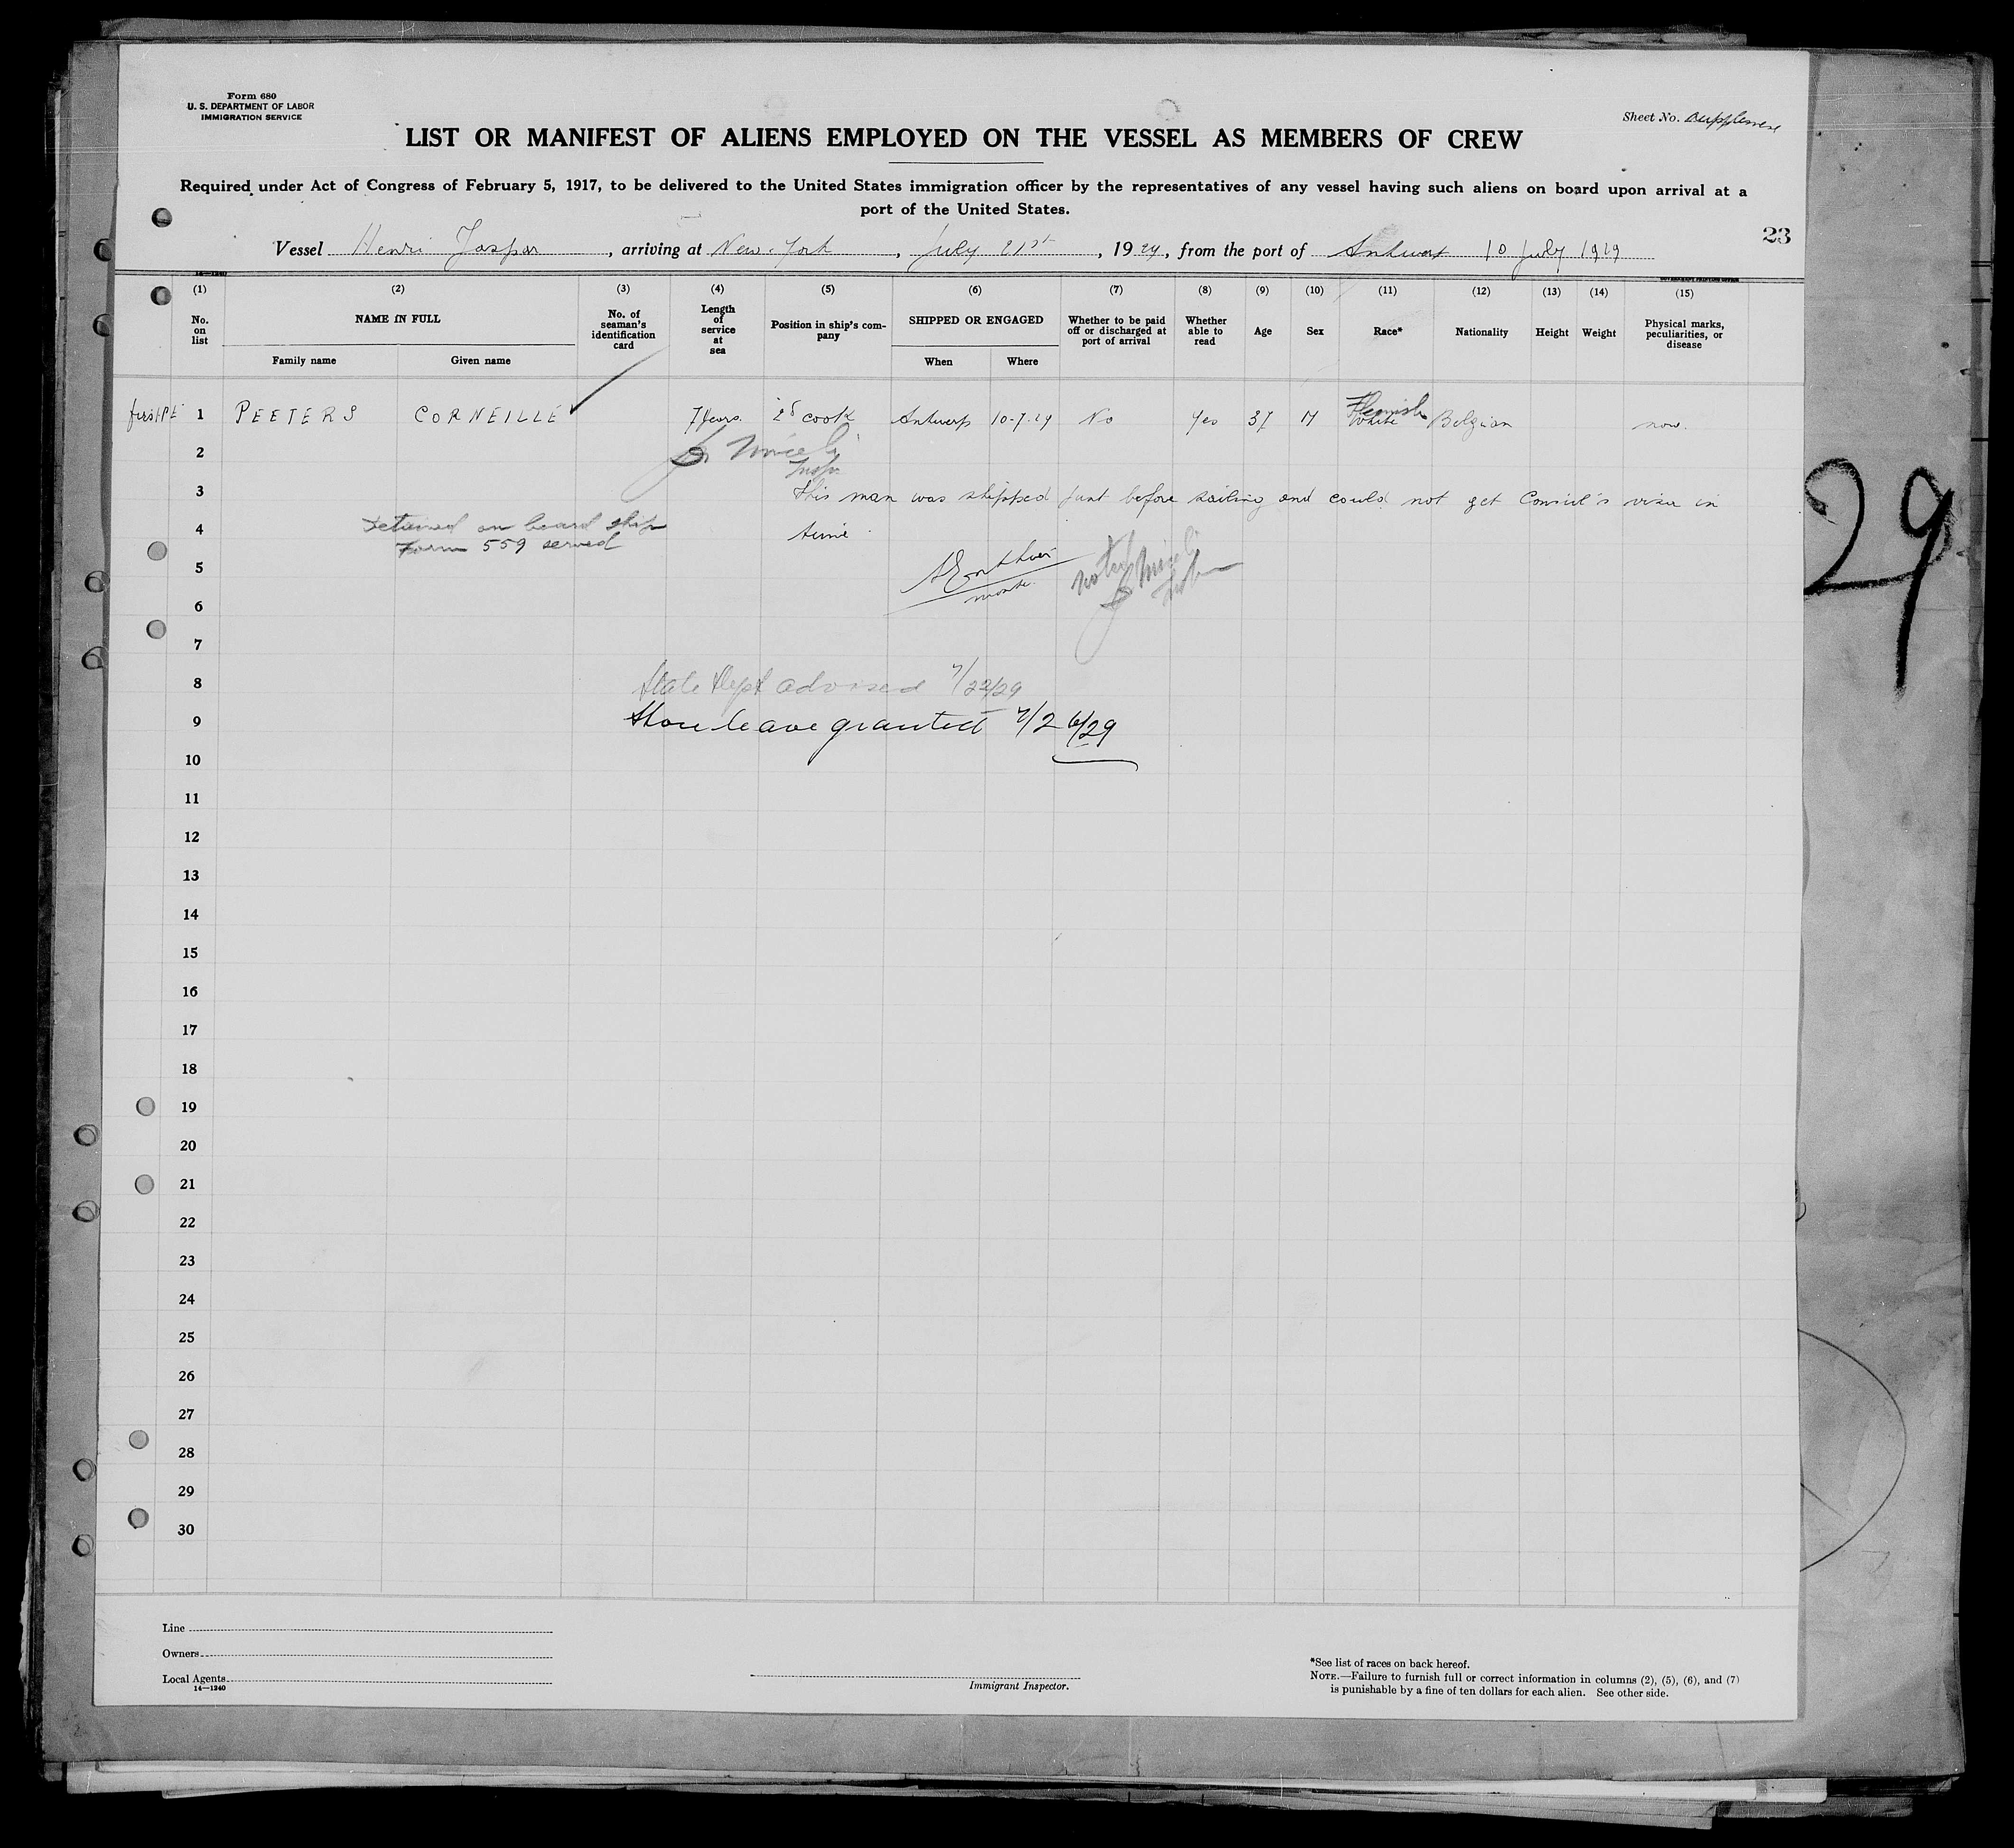 Form 680
U. S. DEPARTMENT OF LABOR
IMMIGRATION SERVICE
Sheet No.
LIST OR MANIFEST OF ALIENS EMPLOYED ON THE VESSEL AS MEMBERS OF CREW
Required under Act of Congress of February 5, 1917, to be delivered to the United States immigration officer by the representatives of any vessel having such aliens on board upon arrival at a
port of the United States.
23
Vessel Henri Jaspar, arriving at New-York, July 21st, 1929, from the port of Antwerp 10 July 1929
(1) (2) (3) (4) (5) (6) (7) (8) (9) (10) (11) (12) (13) (14) (15)
No. on list
NAME IN FULL
Family name Given name
No. of seaman's identification card
Length of service at sea
Position in ship's company
SHIPPED OR ENGAGED
When Where
Whether to be paid off or discharged at port of arrival
Whether able to read
Age
Sex
Race*
Nationality
Height
Weight
Physical marks, peculiarities, or disease
1 PEETERS CORNEILLE 7 years. 2d cook Antwerp 10-7-29 No Yes 37 M Flemish White Belgian
2
Insp.
3 This man was shipped just before sailing and could not get Consul's visa in
4 time
Detained on board ship
Form 559 served
5
6
7
8 State Dept advised 7/22/29
9 Shore leave granted 7/26/29
10
11
12
13
14
15
16
17
18
19
20
21
22
23
24
25
26
27
28
29
30
29
Line
Owners
Local Agents
14—1240
Immigrant Inspector.
*See list of races on back hereof.
NOTE.—Failure to furnish full or correct information in columns (2), (5), (6), and (7)
is punishable by a fine of ten dollars for each alien. See other side.